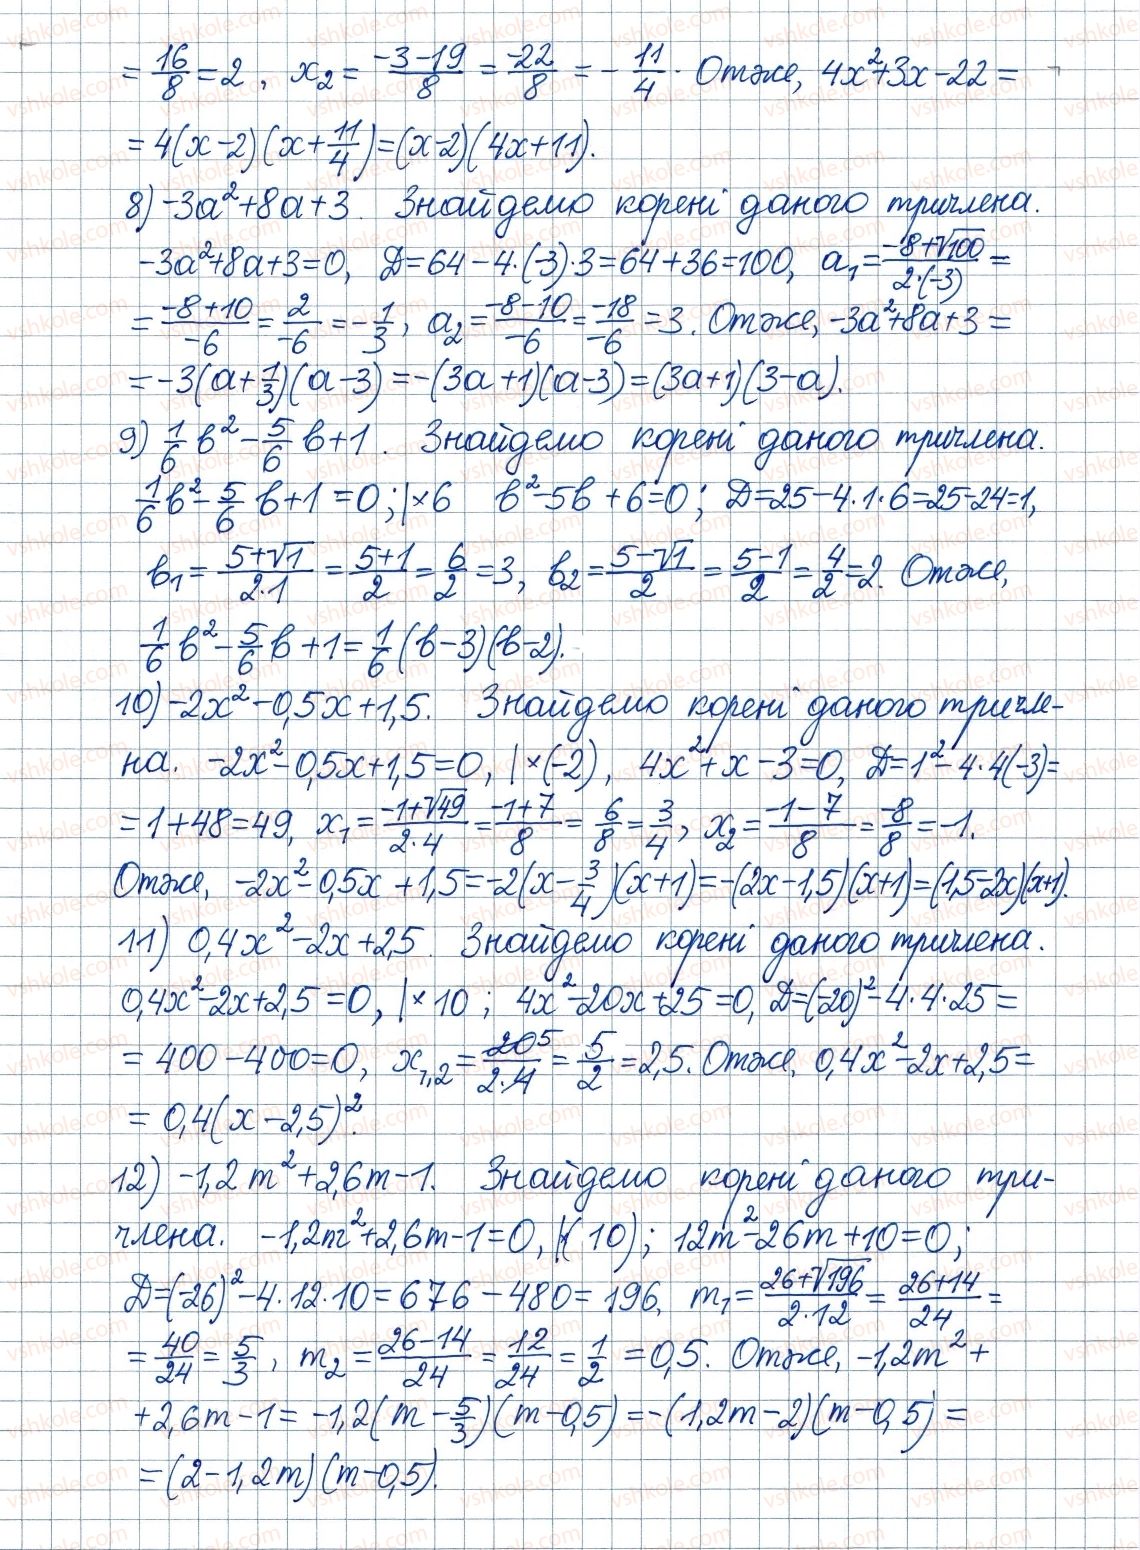 = 16/8 = 2, x₂ = (-3-19)/8 = -22/8 = -11/4. Отже, 4x²+3x-22 =
= 4(x-2)(x+11/4) = (x-2)(4x+11).
8) -3a²+8a+3. Знайдемо корені даного тричлена.
-3a²+8a+3=0, Д=64-4·(-3)·3=64+36=100, a₁ = (-8+√100)/(2·(-3)) =
= (-8+10)/(-6) = 2/(-6) = -1/3, a₂ = (-8-10)/(-6) = -18/-6 = 3. Отже, -3a²+8a+3 =
= -3(a+1/3)(a-3) = -(3a+1)(a-3) = (3a+1)(3-a).
9) 1/6 b² - 5/6 b+1. Знайдемо корені даного тричлена.
1/6 b² - 5/6 b+1=0; |×6 b²-5b+6=0; Д=25-4·1·6=25-24=1,
b₁ = (5+√1)/(2·1) = (5+1)/2 = 6/2 = 3, b₂ = (5-√1)/2 = (5-1)/2 = 4/2 = 2. Отже,
1/6 b² - 5/6 b+1 = 1/6 (b-3)(b-2).
10) -2x²-0,5x+1,5. Знайдемо корені даного тричле-
на. -2x²-0,5x+1,5=0, |×(-2), 4x²+x-3=0, Д=1²-4·4(-3)=
= 1+48=49, x₁ = (-1+√49)/(2·4) = (-1+7)/8 = 6/8 = 3/4, x₂ = (-1-7)/8 = -8/8 = -1.
Отже, -2x²-0,5x+1,5 = -2(x-3/4)(x+1) = -(2x-1,5)(x+1) = (1,5-2x)(x+1).
11) 0,4x²-2x+2,5. Знайдемо корені даного тричлена.
0,4x²-2x+2,5=0, |×10; 4x²-20x+25=0, Д=(-20)²-4·4·25=
= 400-400=0, x₁,₂ = 20⁵/(2·4) = 5/2 = 2,5. Отже, 0,4x²-2x+2,5=
= 0,4(x-2,5)².
12) -1,2m²+2,6m-1. Знайдемо корені даного три-
члена. -1,2m²+2,6m-1=0, |(10); 12m²-26m+10=0;
Д=(-26)²-4·12·10=676-480=196, m₁ = (26+√196)/(2·12) = (26+14)/24 =
= 40/24 = 5/3, m₂ = (26-14)/24 = 12/24 = 1/2 = 0,5. Отже, -1,2m²+
+2,6m-1 = -1,2(m-5/3)(m-0,5) = -(1,2m-2)(m-0,5) =
= (2-1,2m)(m-0,5).
vshkole.com